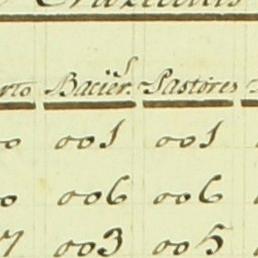 rto Bacier.s Pastores
0 001 001
0 006 006
7 003 005